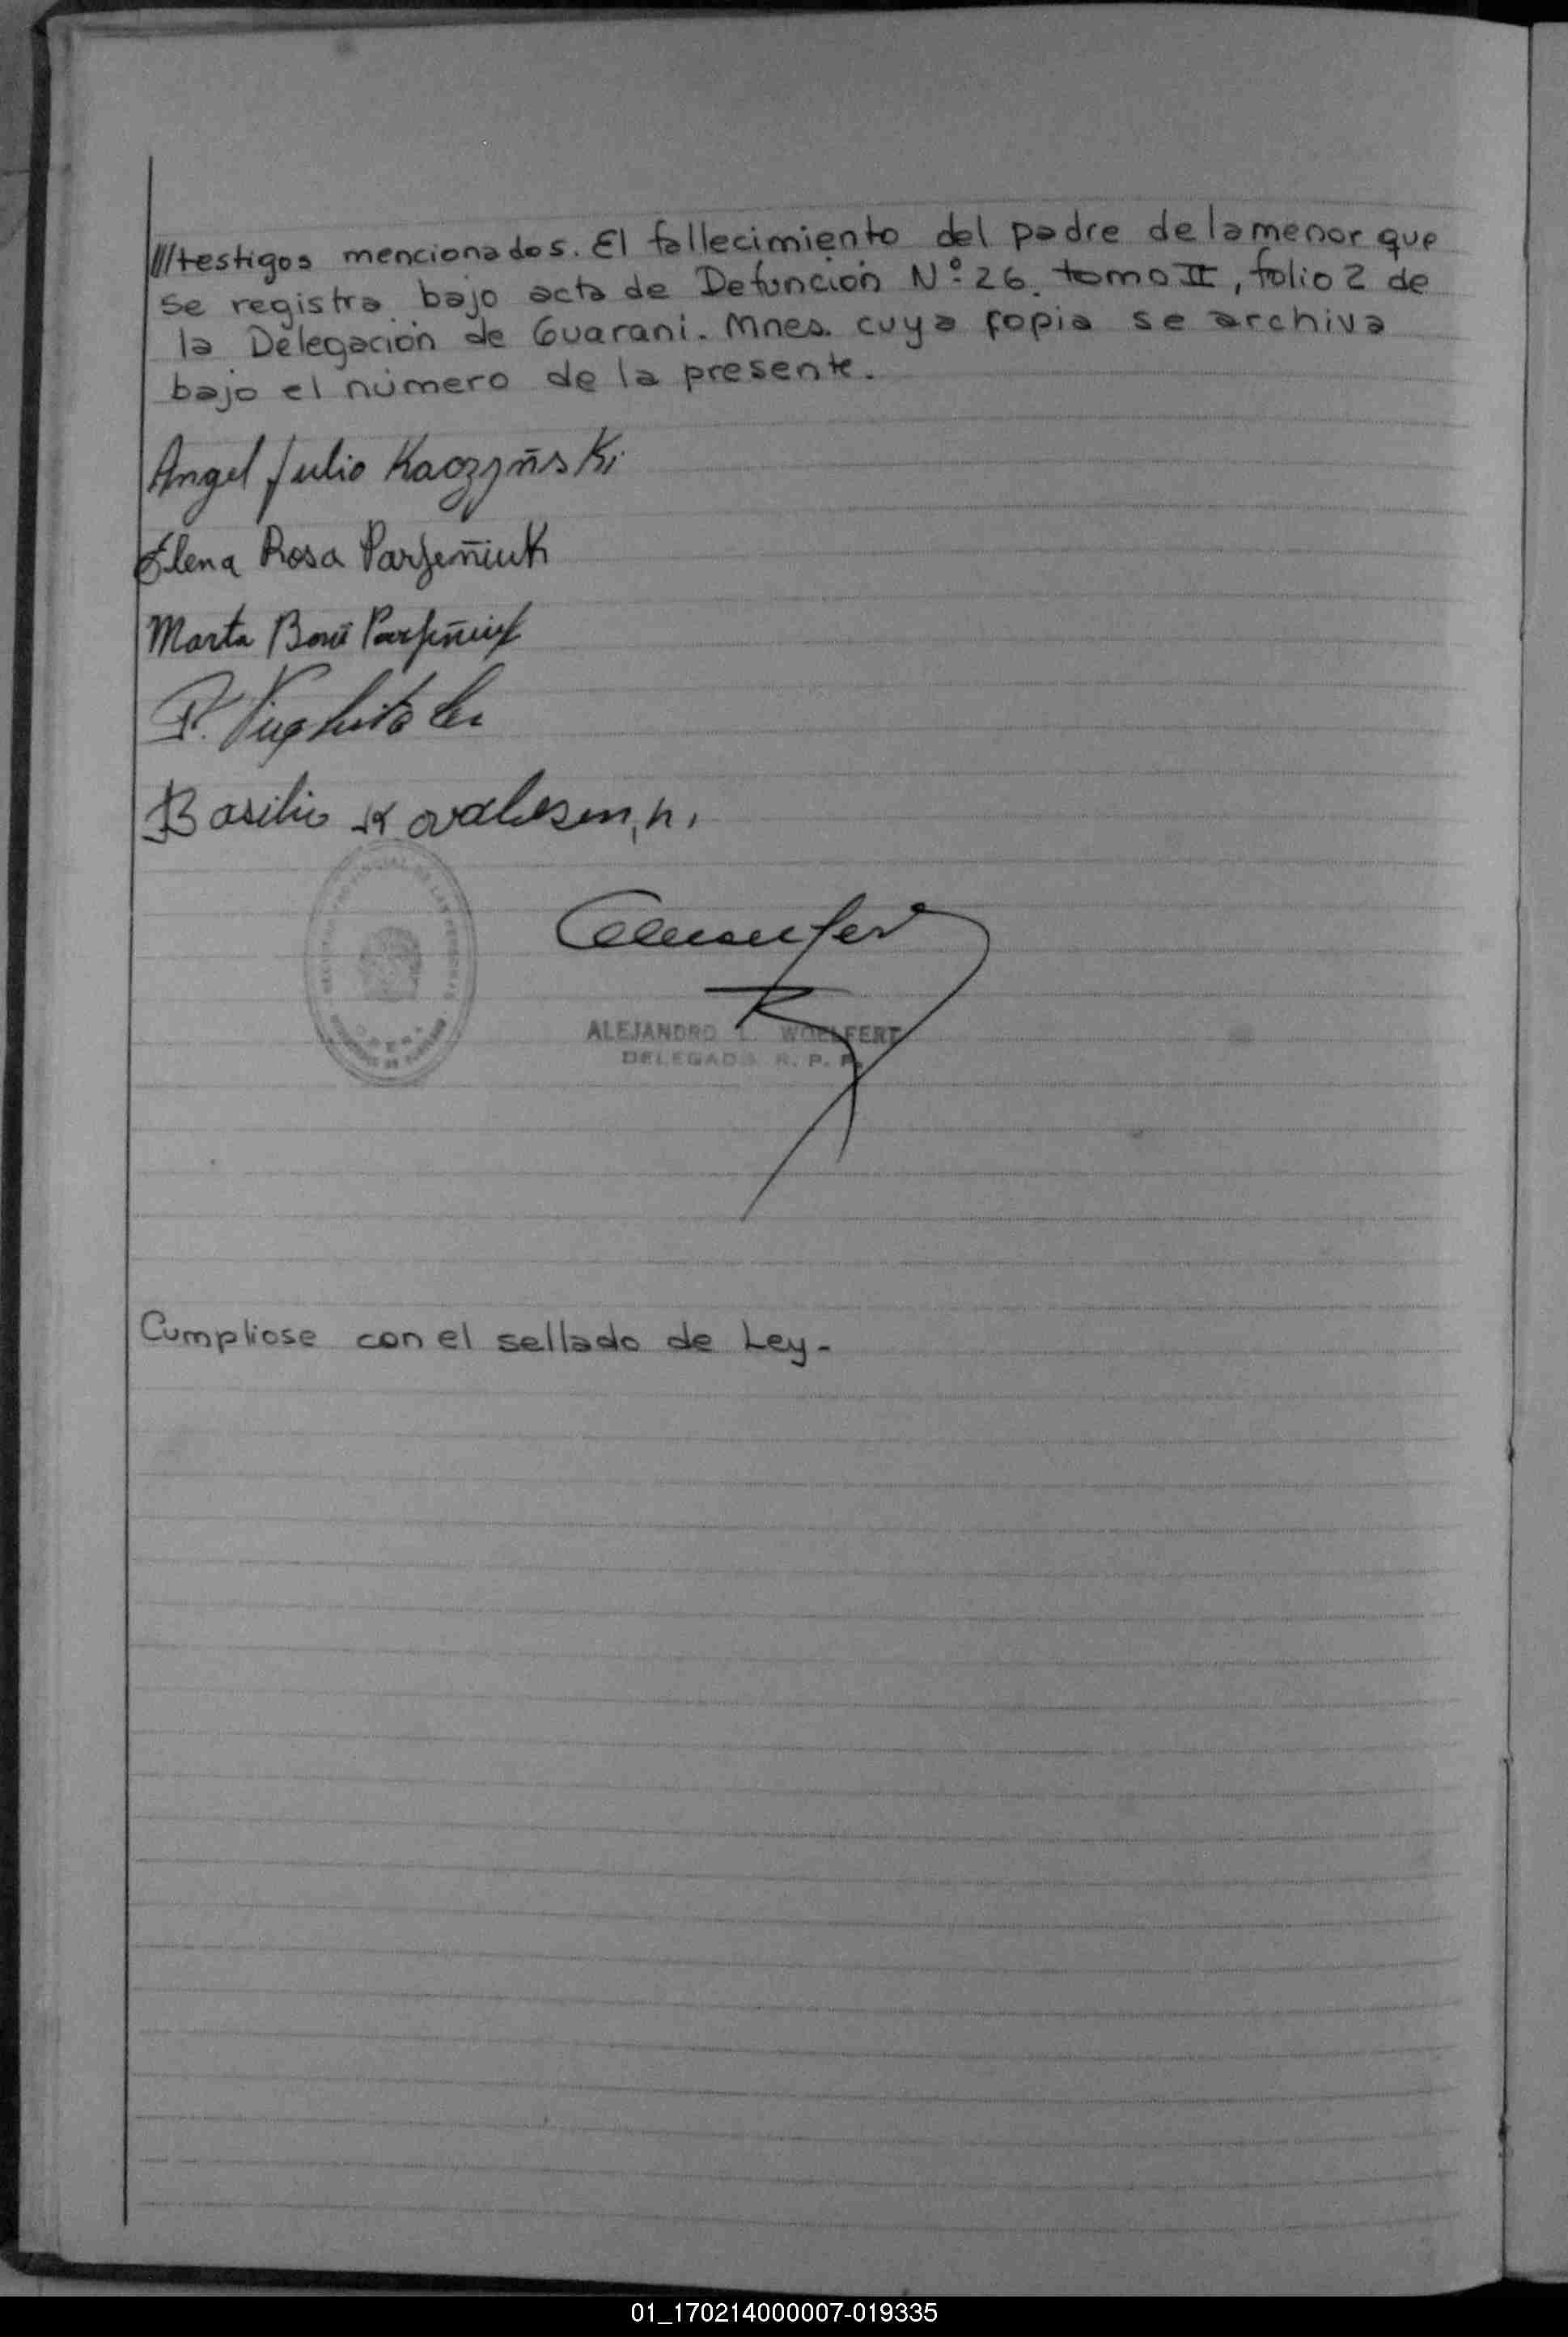 ///testigos mencionados. El fallecimiento del padre de la menor que
se registra bajo acta de Defunción Nº 26. tomo II, folio 2 de
la Delegación de Guarani. Mnes. cuya copia se archiva
bajo el número de la presente.
Angel Julio Kaczyñski
Elena Rosa Parfeñiuk
Marta Parfeñiuk
Basilio
ALEJANDRO L. WOELFERT
DELEGADO R. P. P.
Cumpliose con el sellado de Ley-
01_170214000007-019335